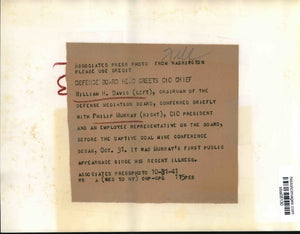 ASSOCIATED PRESS PHOTO FROM WASHINGTON
PLEASE USE CREDIT
DEFENSE BOARD HEAD GREETS CIO CHIEF
WILLIAM H. DAVIS (LEFT), CHAIRMAN OF THE
DEFENSE MEDIATION BOARD, CONFERRED BRIEFLY
WITH PHILIP MURRAY (RIGHT), CIO PRESIDENT
AND AN EMPLOYEE REPRESENTATIVE ON THE BOARD,
BEFORE THE CAPTIVE COAL MINE CONFERENCE
BEGAN, OCT. 31. IT WAS MURRAY'S FIRST PUBLIC
APPEARANCE SINCE HIS RECENT ILLNESS.
ASSOCIATED PRESSPHOTO 10-31-41
(WED TO NY)